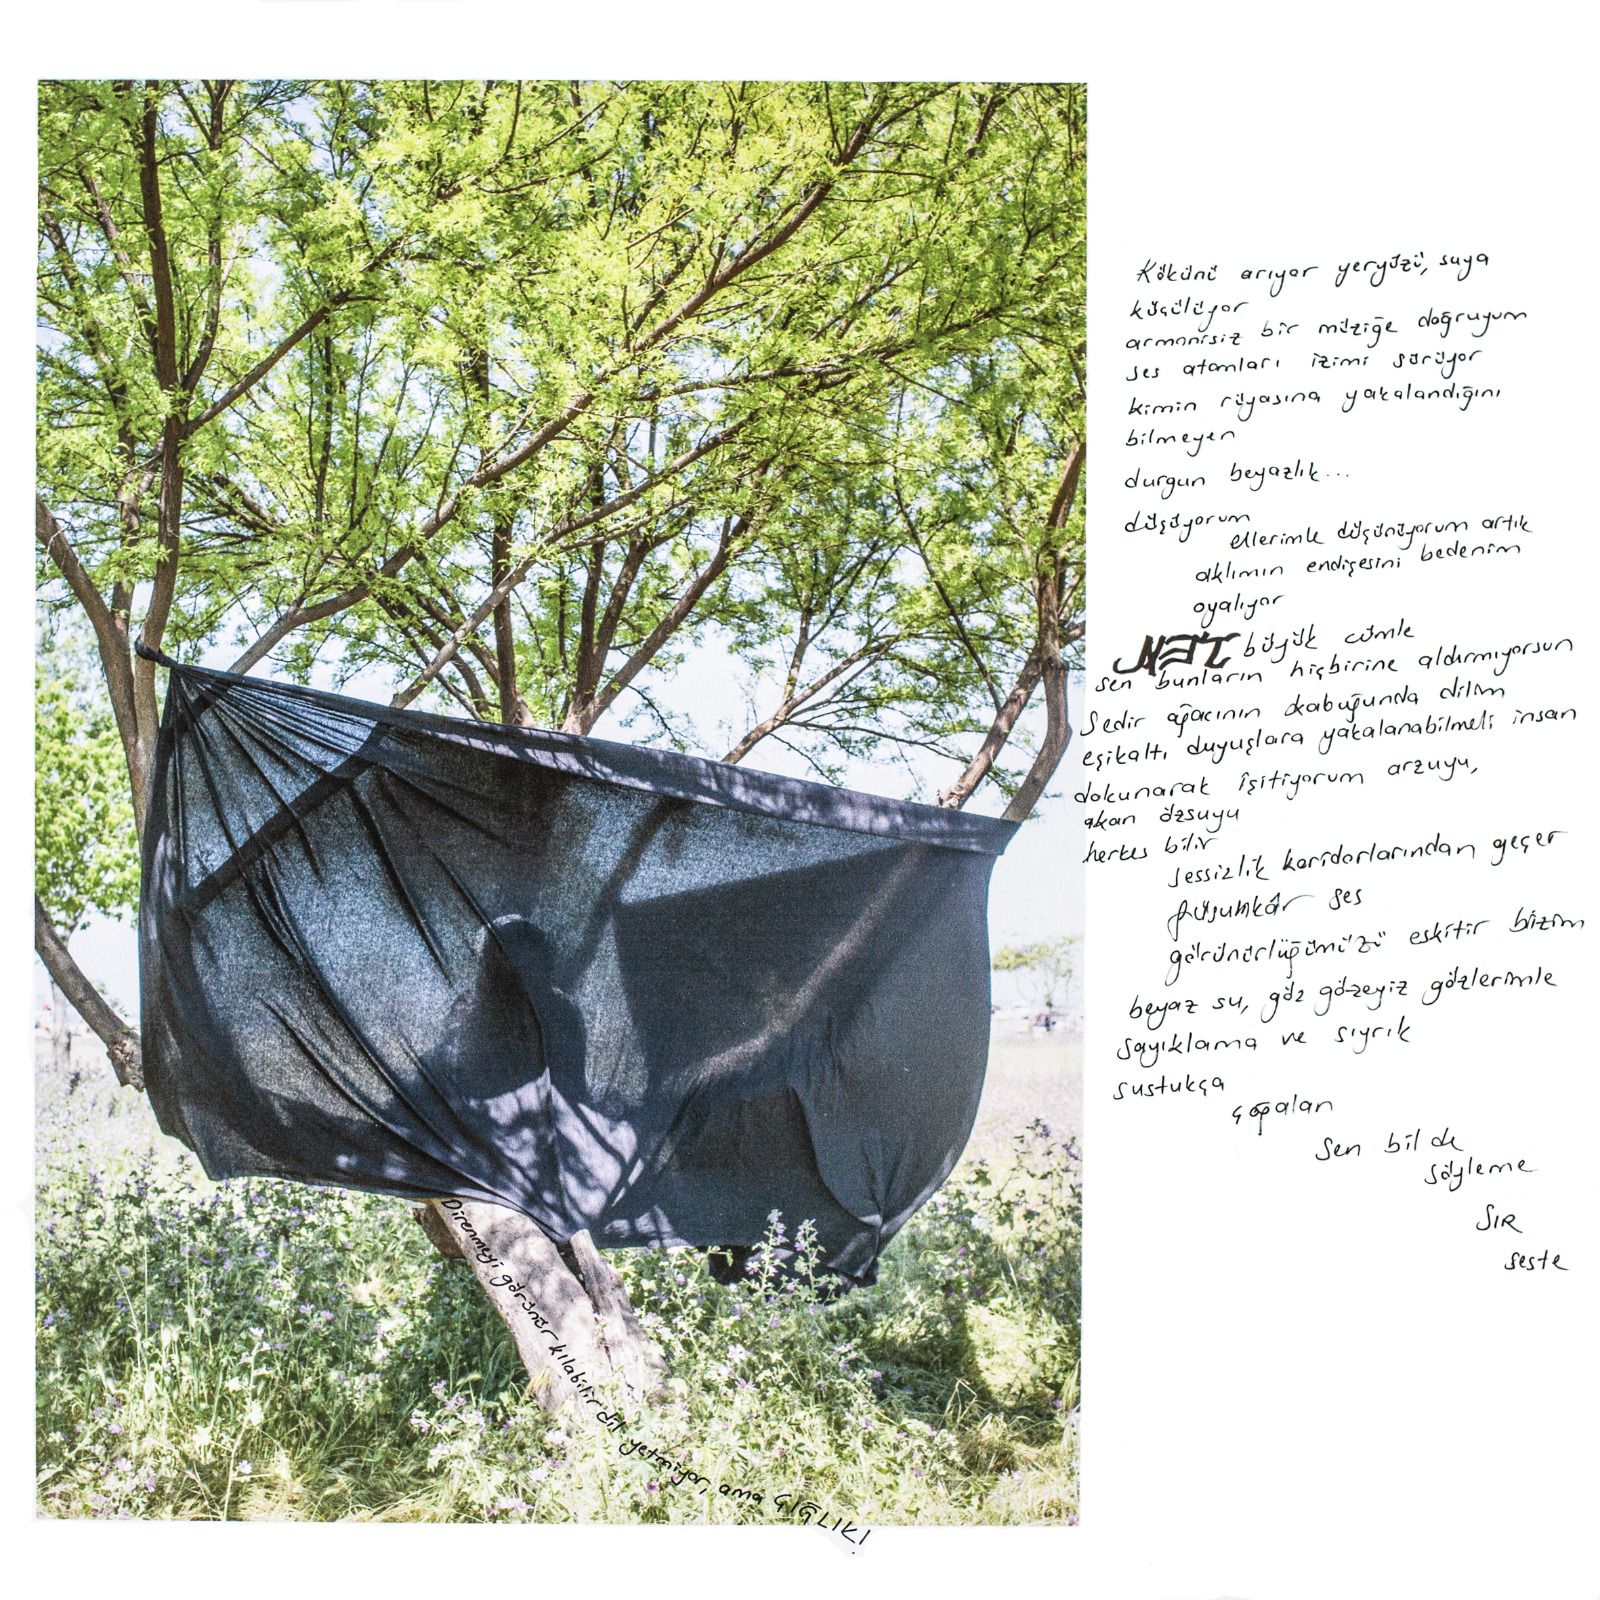 Kökünü arıyor yeryüzü, suya
küçülüyor
armonisiz bir müziğe doğruyum
ses atomları izimi sürüyor
kimin rüyasına yakalandığını
bilmeyen
durgun beyazlık...
düşüyorum
ellerimle düşünüyorum artık
aklımın endişesini bedenim
oyalıyor
NET büyük cümle
sen bunların hiçbirine aldırmıyorsun
Sedir ağacının kabuğunda dilim
eşikaltı duyuşlara yakalanabilmeli insan
dokunarak işitiyorum arzuyu,
akan özsuyu
herkes bilir
sessizlik koridorlarından geçer
füsunkâr ses
görünürlüğümüzü eskitir bizim
beyaz su, göz gözeyiz gözlerimle
sayıklama ve sıyrık
sustukça
çoğalan
sen bil de
söyleme
SIR
seste
Direnmeyi görünür kılabilir dil yetmiyor, ama ÇIĞLIK!